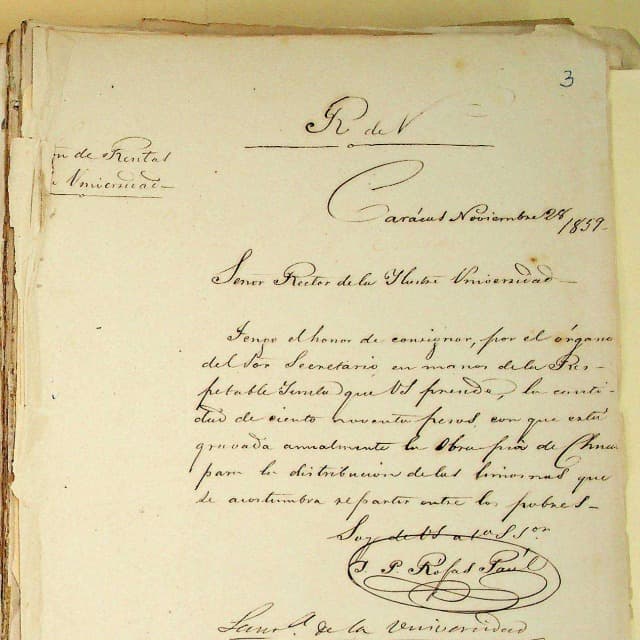 3
R de V
n de Rentas
Universidad
Carácas Noviembre 28
1859
Señor Rector de la Ilustre Universidad
Tengo el honor de consignar, por el órgano
del Sor Secretario, en manos de la Res-
petable Junta que US preside, la canti-
dad de ciento noventa pesos, con que está
gravada anualmente la Obra pia de Chuao
para la distribucion de las limosnas que
se acostumbra repartir entre los pobres-
Soy de US
J. P. Rojas Paúl
de la Universidad